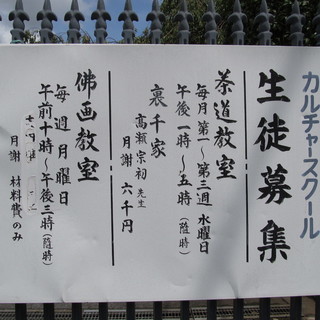 カルチャースクール
生徒募集
茶道教室
毎月第一～第三週 水曜日
午後一時～五時(随時)
裏千家
高瀬宗初先生
月謝 六千円
佛画教室
毎週月曜日
午前十時～午後三時(随時)
月謝 材料費のみ